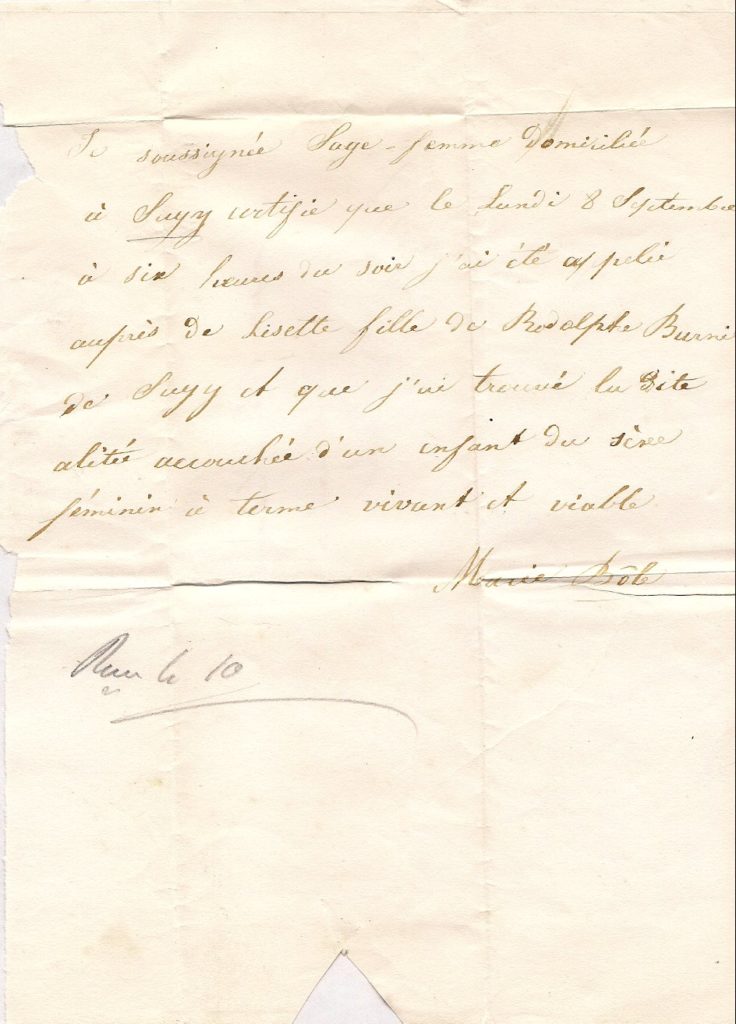 Je soussignée Sage-femme Domiciliée
à Sugy certifie que le Lundi 8 Septembre
à six heures du soir j'ai été appelée
auprès de Lisette fille de Rodolphe Burni
de Sugy et que j'ai trouvé la dite
alitée accouchée d'un enfant du sèxe
féminin à terme vivant et viable
Marie Bôle
le 10